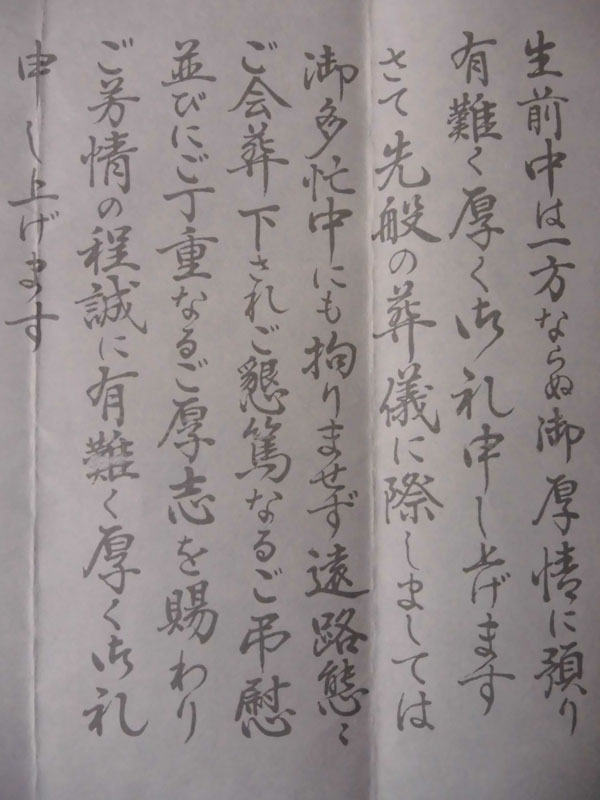 生前中は一方ならぬ御厚情に預り
有難く厚く御礼申し上げます
さて先般の葬儀に際しましては
御多忙中にも拘りませず遠路態〻
ご会葬下されご懇篤なるご弔慰
並びにご丁重なるご厚志を賜わり
ご芳情の程誠に有難く厚く御礼
申し上げます